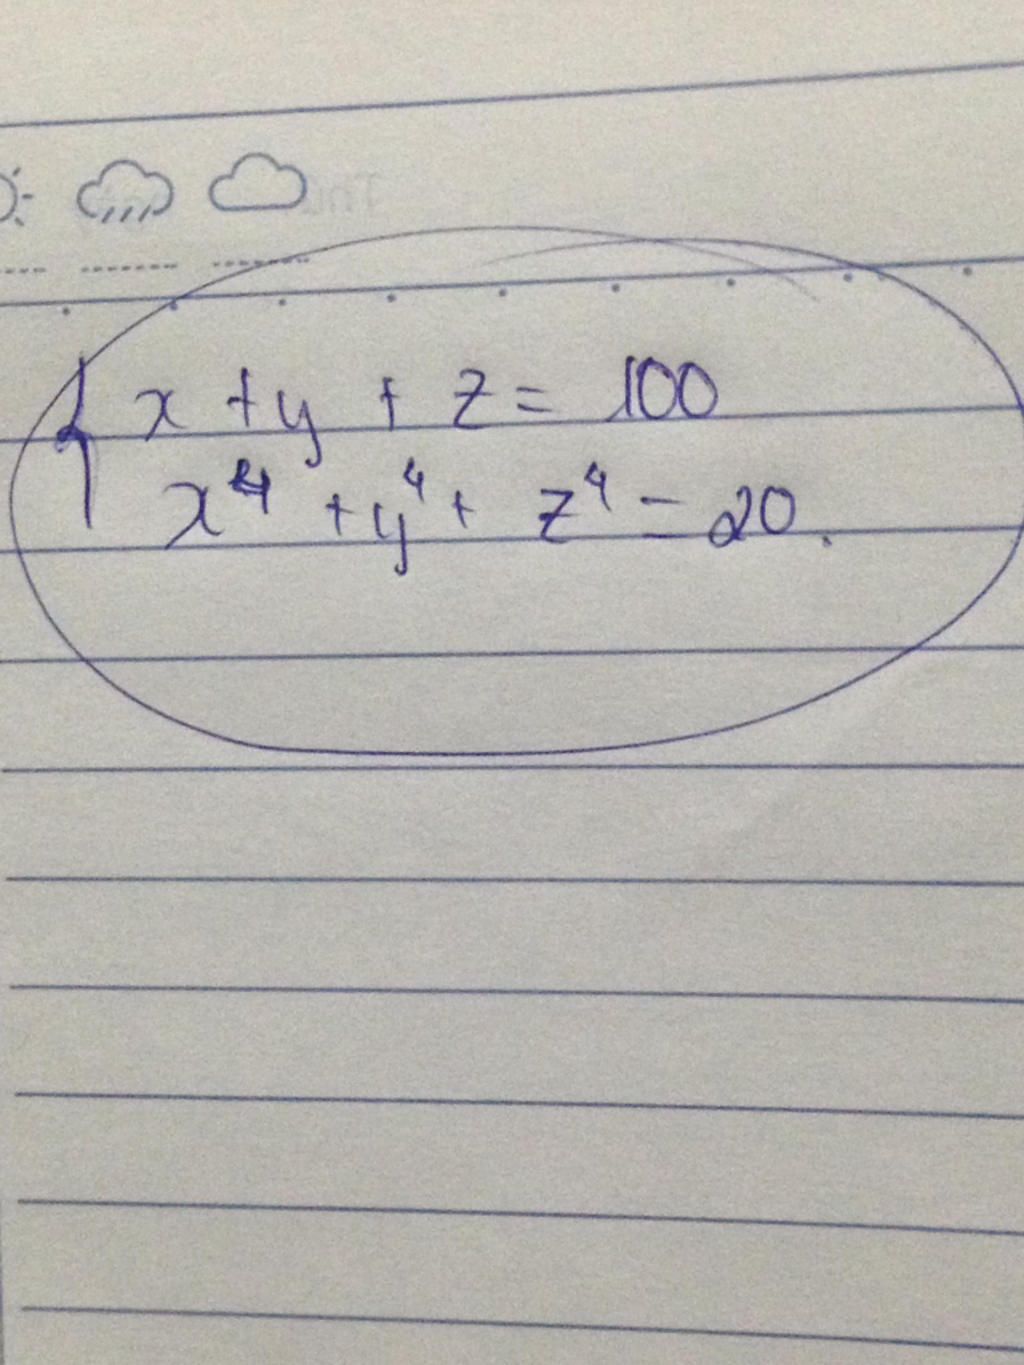 x + y + z = 100
x⁴ + y⁴ + z⁴ = 20.